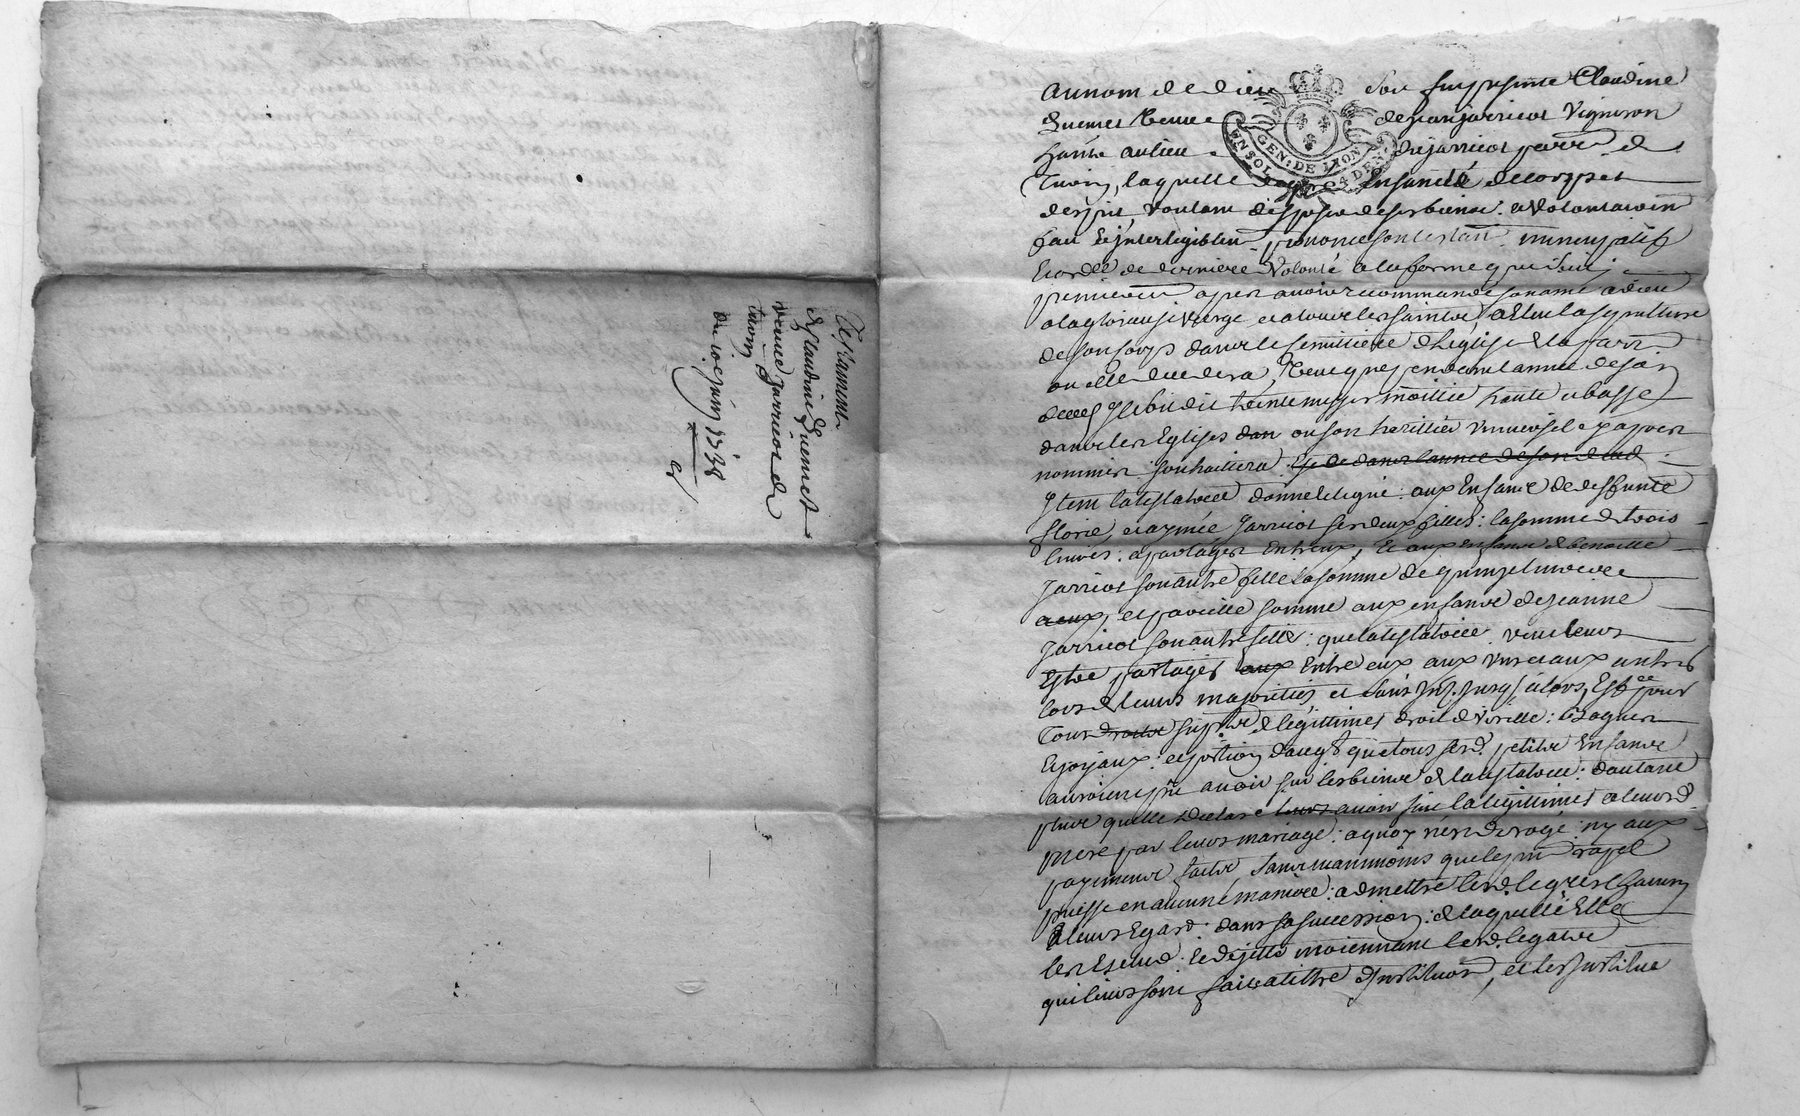 Testament
de Claudine Guenest
veuve Jarricot de
tarin
du 10e juin 1738
au nom de dieu soit fut presente Claudine
Guenest veuve de jean jarricot Vigneron
GEN: DE LYON
4 DEN
habite au lieu de jarricot parr de
laquelle en santé de corps et
desprit voulant disposer de ses biens
prononce son testam nuncupatif
Et ordce de derniere Volonté a la forme que suit
premierem apres avoir recommandé son ame a dieu
a la glorieuse vierge et a tous les saints a Eleu la sepulture
de son corps dans le semittiere de l'église de la parr
ou elle decedera, Veut que pendant l'annee de son
deces Il soit dit trente messes moittié haute et basse
dans les Eglises dan ou son heritier universel cy apres
nommer souhaittera
Item la testatrice donne et legue aux Enfans de deffunte
florie, et aymée Jarricot ses deux filles: la somme de trois
livres: a partager Entreux, Et aux enfans de benoitte
Jarricot son autre fille la somme de quinze livres
aeux, et pareille somme aux enfans de jeanne
Jarricot son autre fille: que la testatrice veut leurs
Estre partagés aux Entre eux aux uns et aux autres
lors de leurs majorités et sans jusqu'alors, Est ce pour
tous droits de legittimes droit de : Bagues
Et joyaux: et portion daug que tous sesd. petits Enfans
auroient pu avoir sur les biens de la testatrice: dautant
plus quelle declare leurs avoir sa legittimes a leursd
mere par leurs mariage: a quoy n'est derogé: ny aux
payements faits, sans neanmoins que le pnt rapel
puisse en aucune maniere: admettre lesd. legataires
a leurs Egard dans sa succession: de laquelle Elle
les Exclud: Et dejette moiennant lesd. legats
qui leurs sont fait a tiltre d'Institution, et les Institue